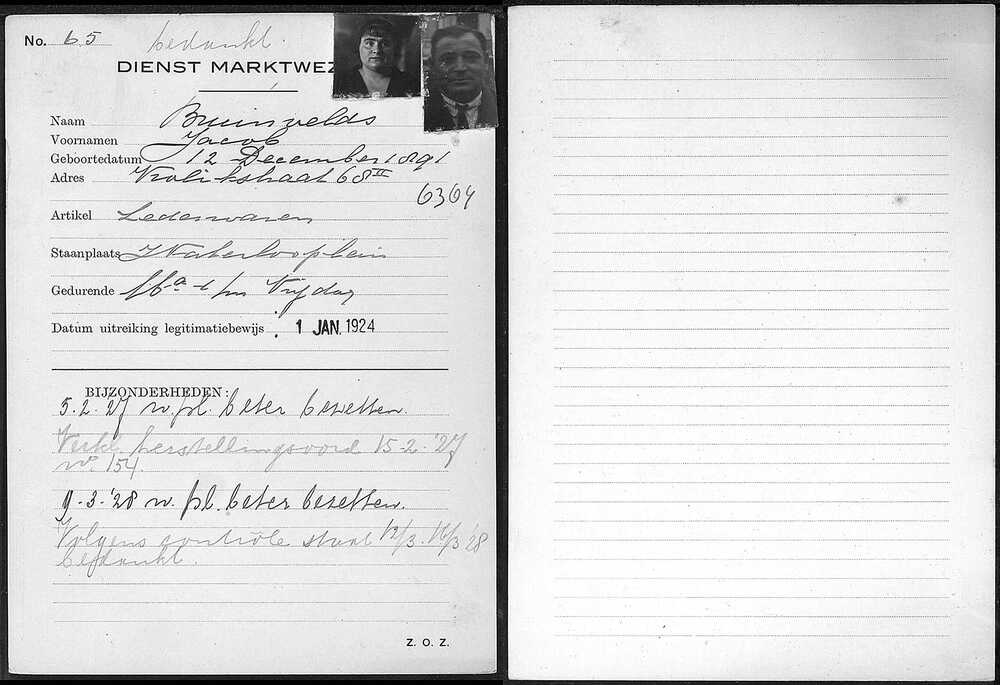 No. 65 bedankt.
DIENST MARKTWEZ
Naam Bruinvelds
Voornamen Jacob
Geboortedatum 12 December 1891
Adres Krolikstraat 68 II
6364
Artikel Lederwaren
Staanplaats Waterlooplein
Gedurende Ma t/m Vrijdag
Datum uitreiking legitimatiebewijs 1 JAN. 1924
BIJZONDERHEDEN:
5-2-'27 w. pl. beter bezetten.
herstellingsoord 15-2-'27
no. 154.
9-3-'28 w. pl. beter bezetten.
Volgens contrôle staat 12/3-16/3 '28
bedankt.
Z. O. Z.